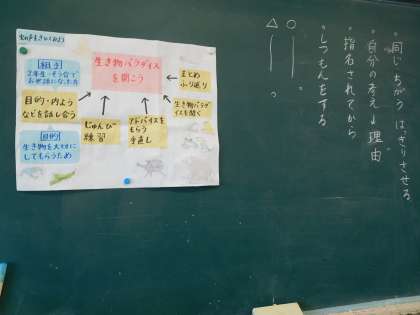 生き物パラダイス
を開こう
相手
2年生・そう合で
お世話になった方
目的・内よう
などを話し合う
目的
生き物を大切に
してもらうため
じゅんび
練習
アドバイスを
もらう
手直し
まとめ
ふり返り
生き物パラダ
イスを開く
・同じ ちがう はっきりさせる
・自分の考え↓理由
・指名されてから
・しつもんをする
○ ── 。
△ ── 。